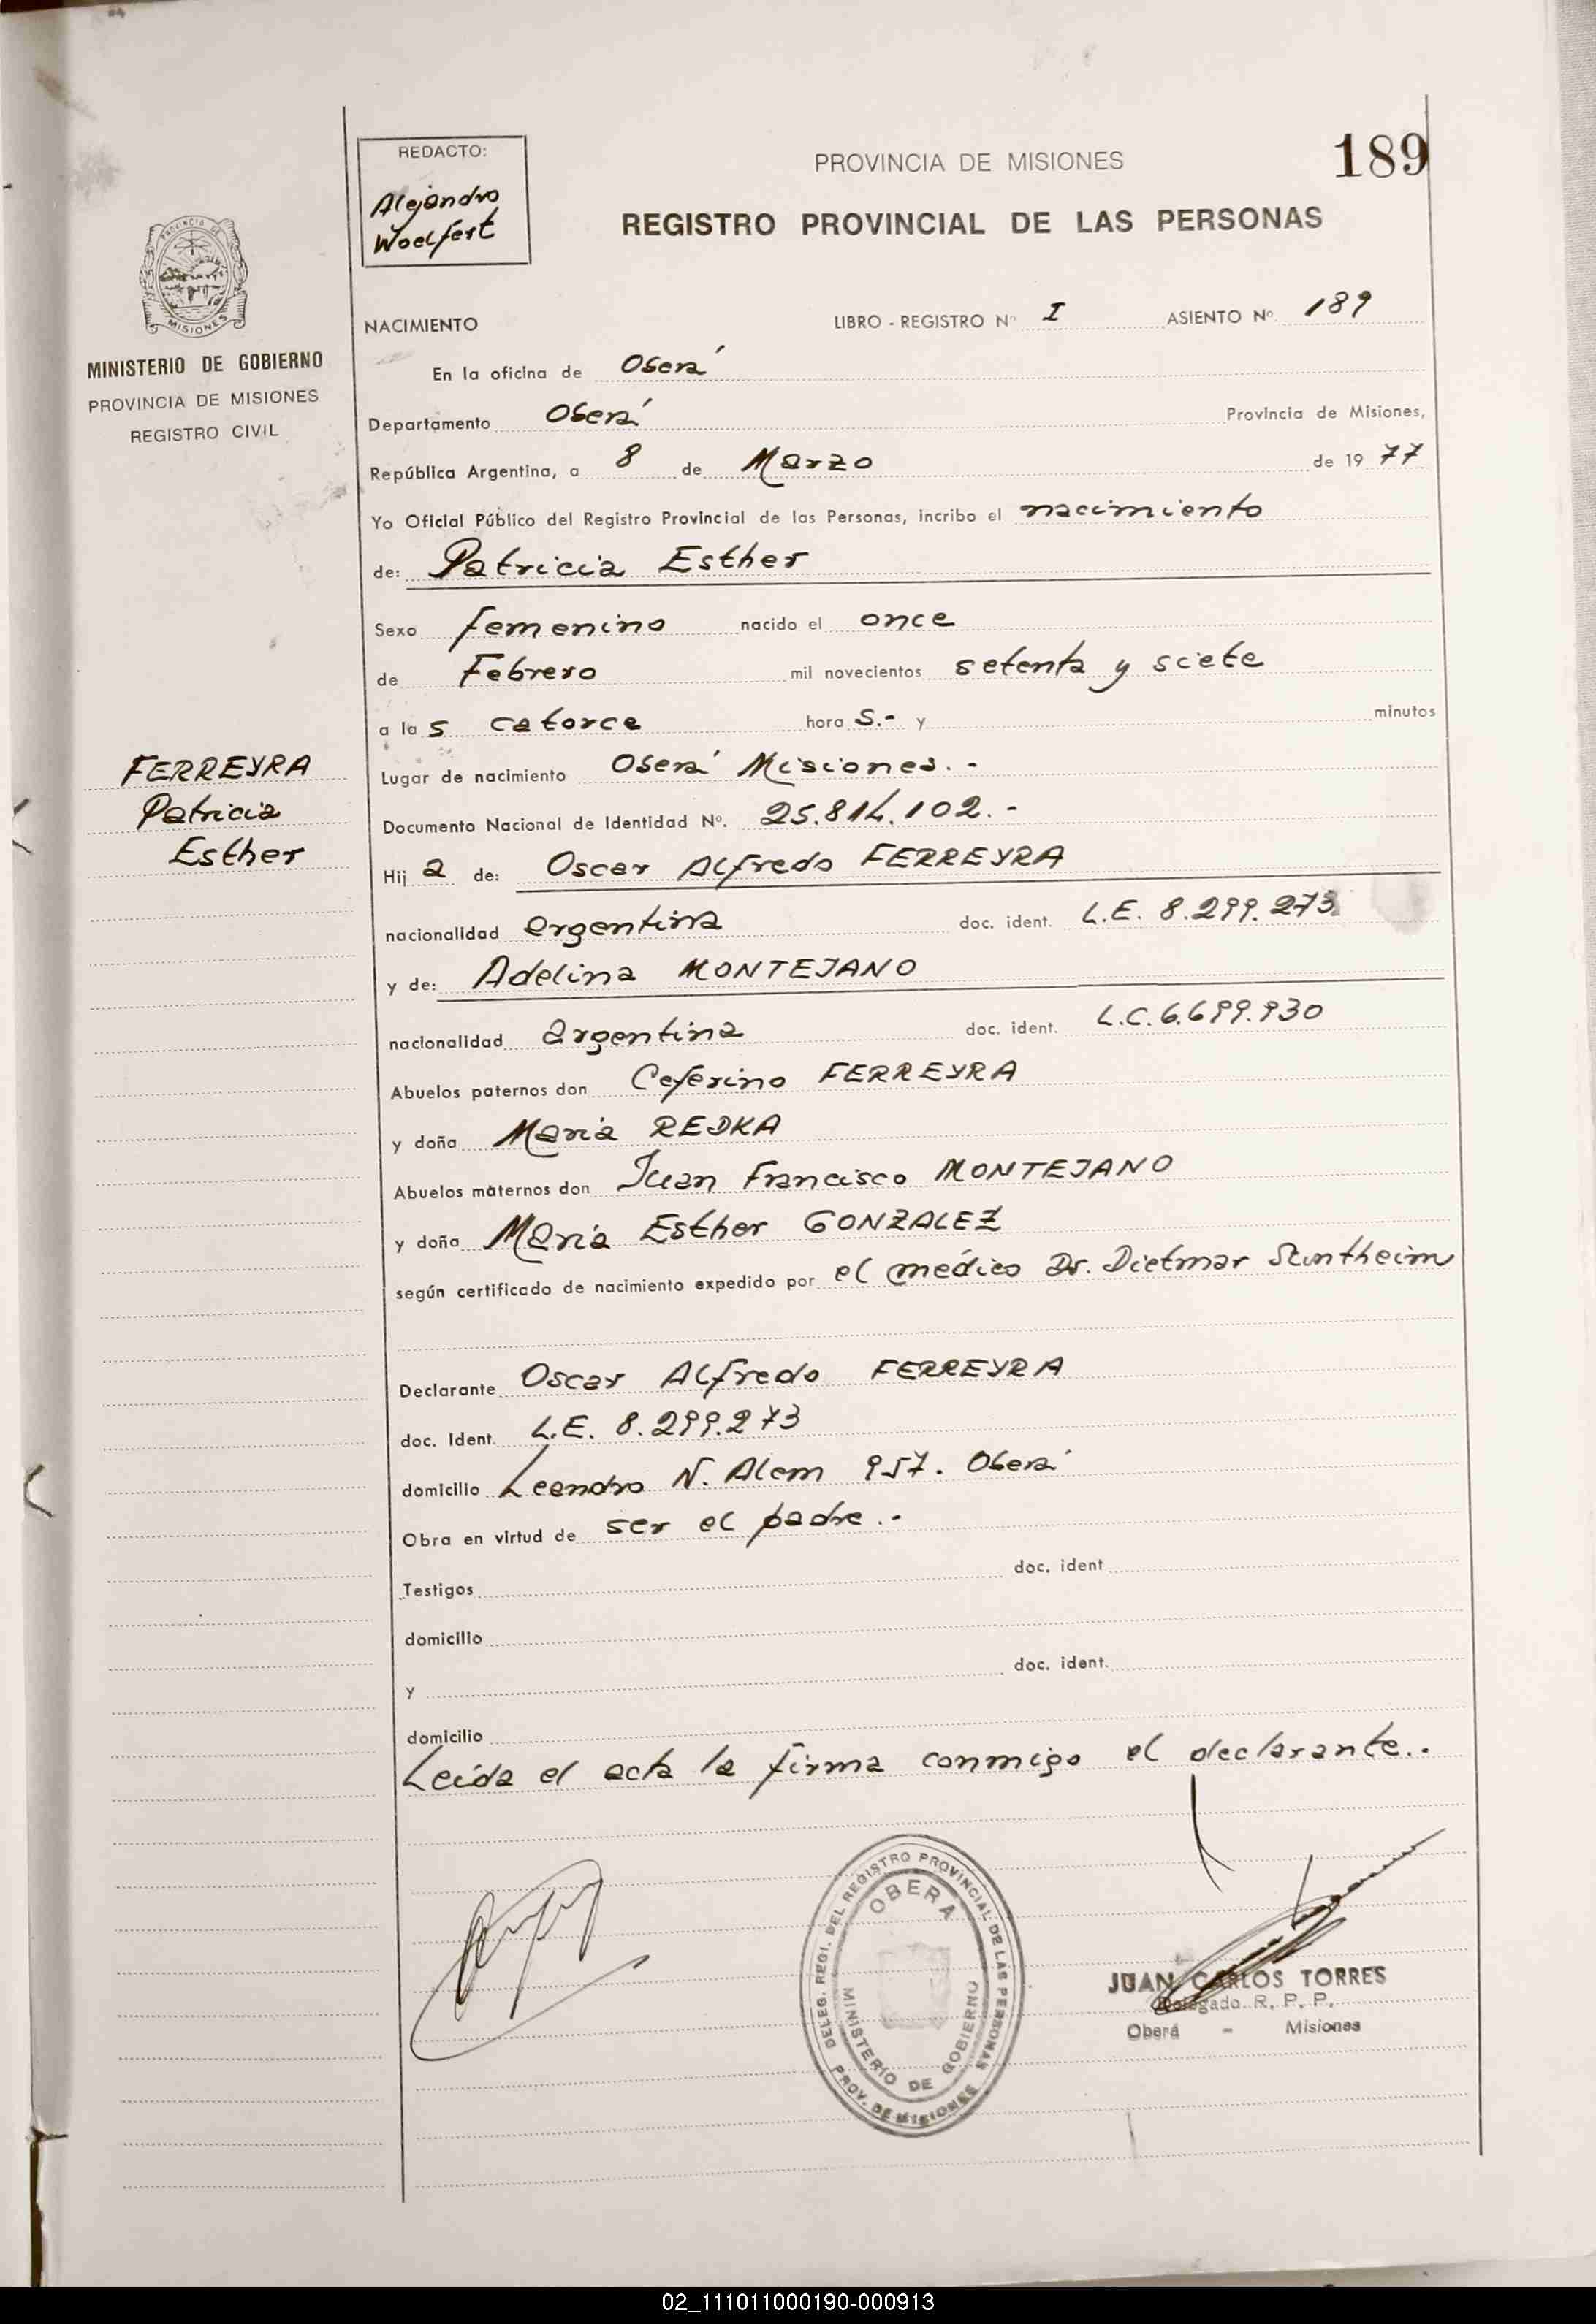 REDACTO:
Alejandro
Woelfert
PROVINCIA DE MISIONES
189
REGISTRO PROVINCIAL DE LAS PERSONAS
PROVINCIA DE
MISIONES
MINISTERIO DE GOBIERNO
PROVINCIA DE MISIONES
REGISTRO CIVIL
NACIMIENTO LIBRO - REGISTRO Nº I ASIENTO Nº. 189
En la oficina de Oberá
Departamento Oberá Provincia de Misiones,
República Argentina, a 8 de Marzo de 19 77
Yo Oficial Público del Registro Provincial de las Personas, incribo el nacimiento
de: Patricia Esther
Sexo femenino nacido el once
de Febrero mil novecientos setenta y siete
a las catorce hora s.- y minutos
FERREYRA
Patricia
Esther
Lugar de nacimiento Oberá Misiones.-
Documento Nacional de Identidad Nº. 25.814.102.-
Hij a de: Oscar Alfredo FERREYRA
nacionalidad argentina doc. ident. L.E. 8.299.273
y de: Adelina MONTEJANO
nacionalidad argentina doc. ident. L.C. 6.699.930
Abuelos paternos don Ceferino FERREYRA
y doña María REDKA
Abuelos maternos don Juan Francisco MONTEJANO
y doña María Esther GONZALEZ
según certificado de nacimiento expedido por el médico Dr. Dietmar Suntheim
Declarante Oscar Alfredo FERREYRA
doc. Ident. L.E. 8.299.273
domicilio Leandro N. Alem 957. Oberá
Obra en virtud de ser el padre.-
Testigos doc. ident
domicilio
y doc. ident.
domicilio
Leída el acta la firma conmigo el declarante..
DELEG. REGI. DEL REGISTRO PROVINCIAL DE LAS PERSONAS
OBERA
MINISTERIO DE GOBIERNO
PROV. DE MISIONES
JUAN CARLOS TORRES
Delegado R. P. P.
Oberá - Misiones
02_111011000190-000913